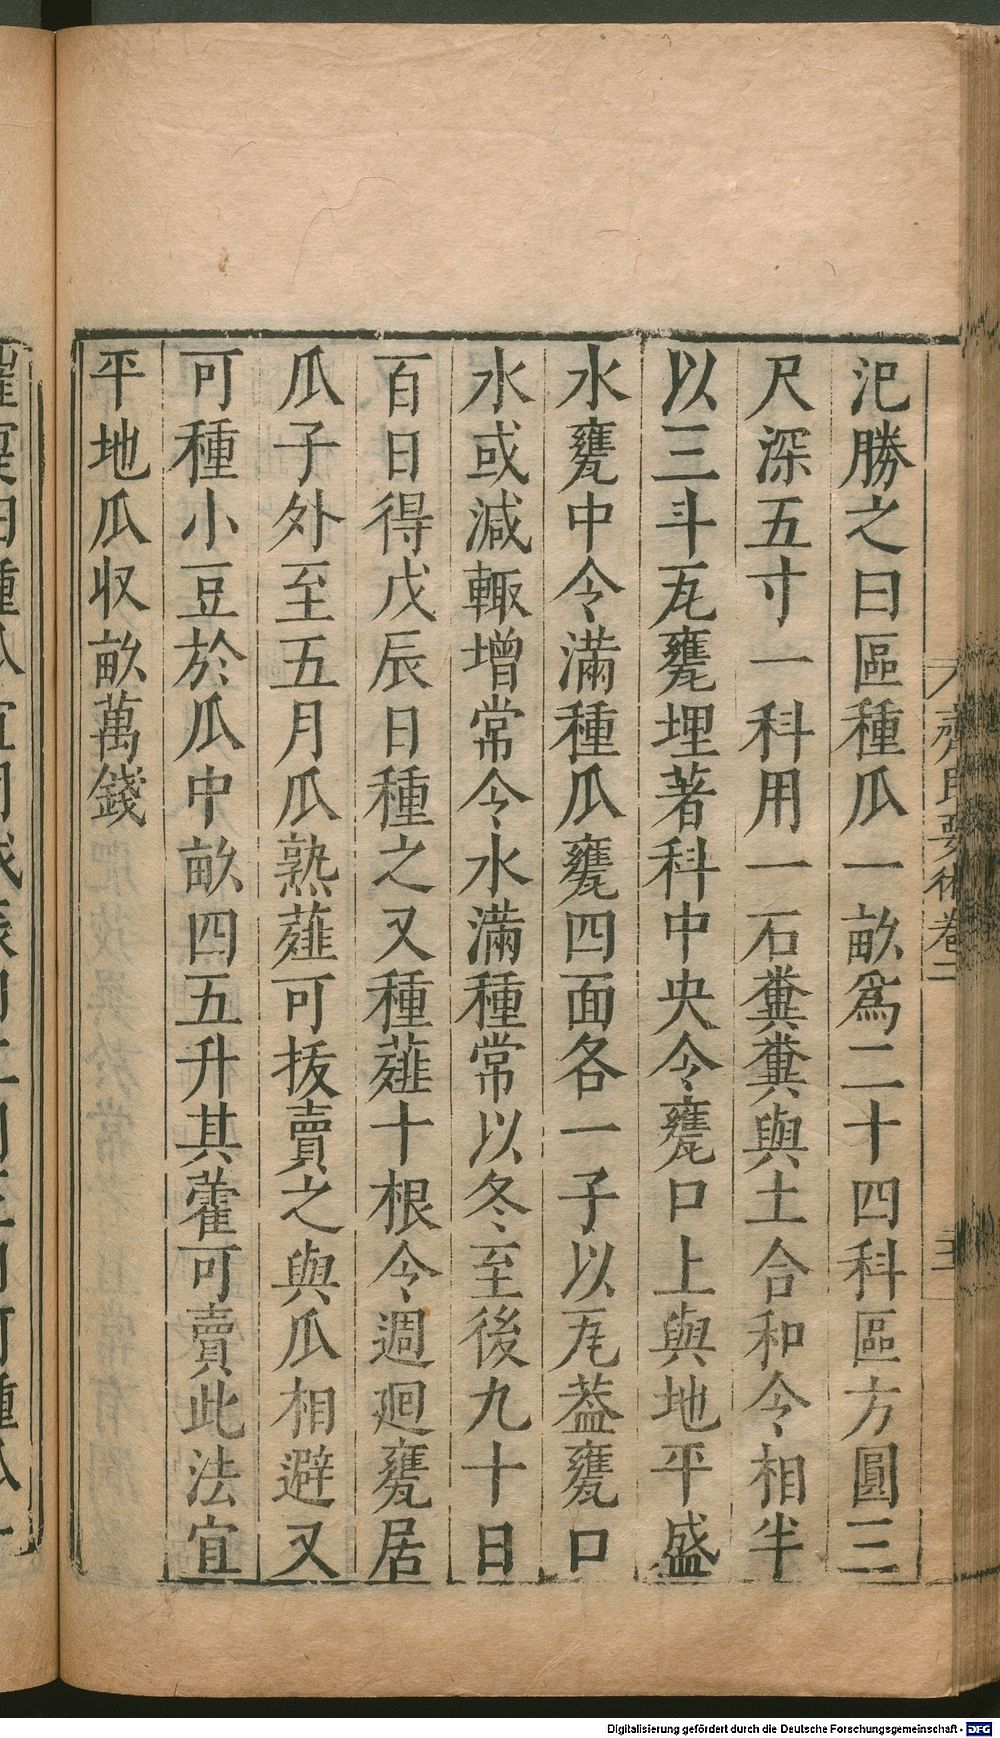 氾勝之曰區種瓜一畝爲二十四科區方圓三
尺深五寸一科用一石糞糞與土合和令相半
以三斗瓦甕埋著科中央令甕口上與地平盛
水甕中令滿種瓜甕四面各一子以瓦葢甕口
水或減輙增常令水滿種常以冬至後九十日
百日得戊辰日種之又種薤十根令週廻甕居
瓜子外至五月瓜熟薤可拔賣之與瓜相避又
可種小豆於瓜中畝四五升其藿可賣此法宜
平地瓜収畝萬錢
齊民要術卷二
Digitalisierung gefördert durch die Deutsche Forschungsgemeinschaft - DFG